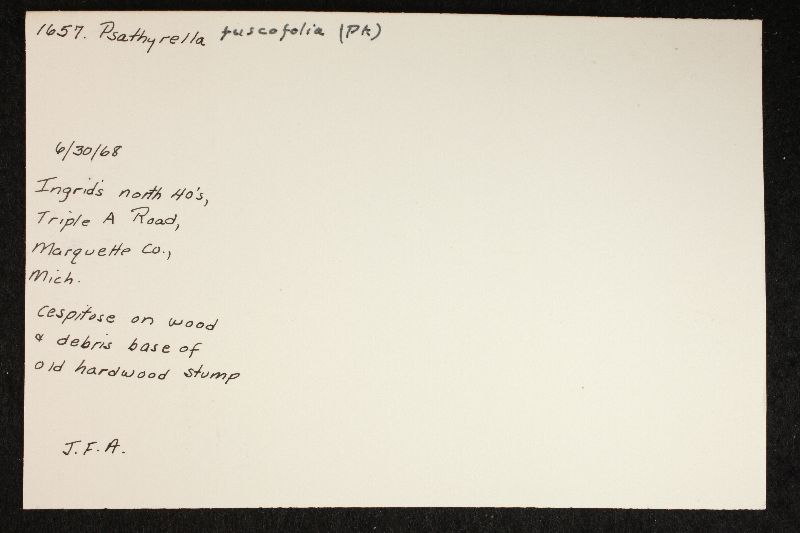 1657. Psathyrella fuscofolia (Pk)
6/30/68
Ingrid's north 40's,
Triple A Road,
Marquette Co.,
Mich.
Cespitose on wood
& debris base of
old hardwood stump
J.F.A.